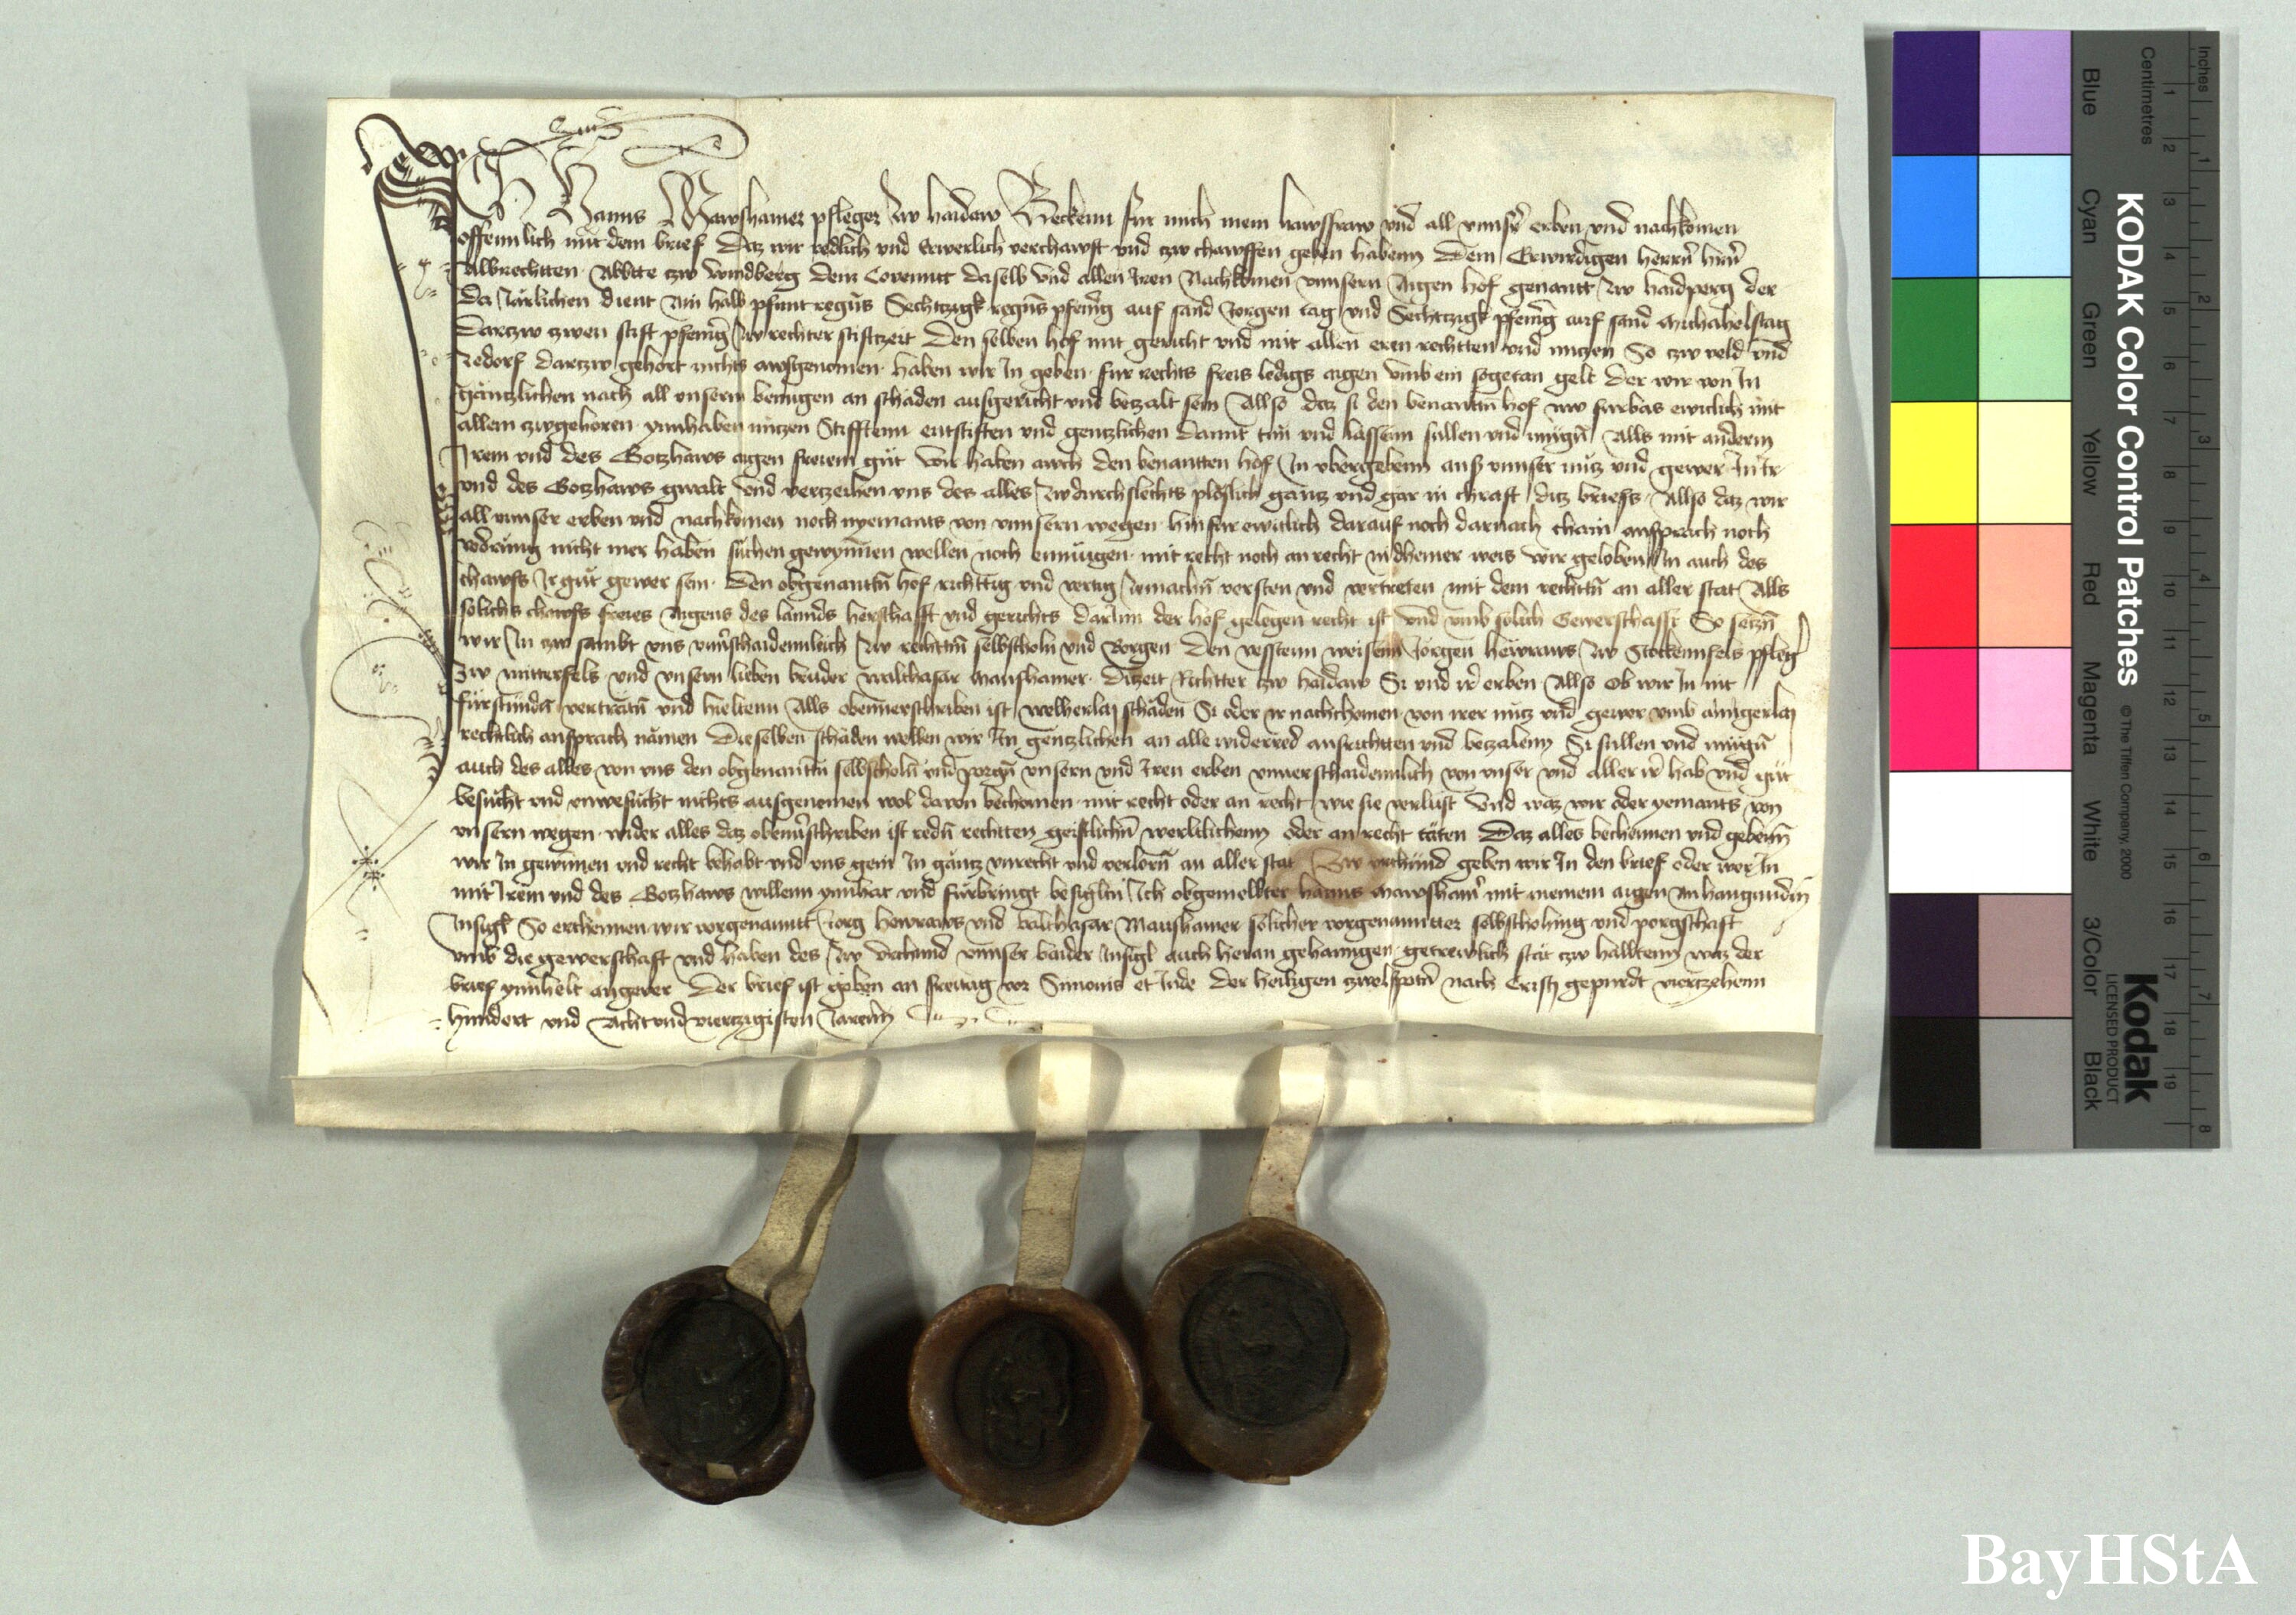 Ich Hanns Mawshamer pfleger zw haidaw Bekenn fur mich mein hawsfraw vnd all vnnser erben vnd nachkomen
offennlich mit dem brief Daz wir redlich vnd Erwerlich verchawft vnd czw chawffen geben habenn Dem Erwirdigen herrn hern
Albrechtten Abbtte czw Windberg dem Covennt daselb vnd allen Iren Nachkomen vnnsern Aigen hof genantt zw haidperg der
Da Järlichen dient Ain halb pfunt regens Sechtzigk regens pfening auf sand Jorgen tag vnd Sechtzigk pfening auf sand Michahelstag
Darczw zwen stift pfening zw rechter stiftzeit Den selben hof mit gericht vnd mit allen eren rechtten vnd nuczen So czw veld vnd
zedorf darczw gehort nichts awsgenomen haben wir In geben fur rechts freis ledigs aigen vmb ein sogetan gelt Der wir von In
gäntzlichen nach all vnserm benügen an schäden ausgericht vnd betzalt sein Allso daz si den benanttn hof nw furbas ewiclich mit
allem zwgehoren ynnhaben nuczen Stifftenn entstiften vnd gentzlichen damit tun vnd lassenn sullen vnd mugen Alls mit anderm
Irem vnd des Gotzhaws aigen freiem gut Wir haben auch den benantten hof In vbergebenn aus vnnser nutz vnd gewer In Ir
vnd des Gotzhaws gwalt Vnd vertzeihen vns des alles zw durchslechts ploslich gantz vnd gar in chraft ditz briefs Allso daz wir
all vnnser erben vnd nachkomen noch nyemants von vnnsern wegen hinfur ewiclich darauf noch darnach chain ansprach noch
vodrung nicht mer haben suchen gewynnen wellen noch enmugen mit recht noch an recht in dhainer weis Wir geloben In auch des
chawfs Ir gut gewer sein Den obgenanttn hof richttig vnd vertig zemachn versten vnd vertreten mit dem rechttn an aller stat Alls
solichs chawfs freies Aigens des lannds herschafft vnd gerichts darInn der hof gelegen recht ist Vnd vmb solich Gewerschafft So setzn
wir In czw sambt vns vnuerschaidennlich zw rechttn selbscholn vnd Borgen Den vesstenn weisenn Jorgen hewraws zw Stockennfels pfleger
Zw mitterfels vnd vnsern lieben bruder walthasar Maushamer Dietzeit Richtter czw haidaw Si vnd ir erben Allso Ob wir In nit
fürstünden verträtn vnd hieltenn Alls obenuerschriben ist welherlay schäden Si oder ir nachchomen von irer nutz vnd gewer vmb ainigerlay
rechtlich ansprach nämen Dieselben schäden wellen wir In gentzlichen an alle widerred ausrichtten vnd betzalenn Si sullen vnd mugen
auch des alles von vns den obgenanttn selbscholn vnd porgn vnsern vnd Iren erben vnuerschaidennlich von vnser vnd aller ir hab vnd gut
besucht vnd vnuesucht nichts ausgenomen wol dauon bechomen mit recht oder an recht wie sie verlust Vnd waz wir oder yemants von
vnsern wegen wider alles daz obenuerschriben ist redn rechtten geistlichen werltlichenn oder an recht täten Daz alles bechennen vnd gebenn
wir In gewunnen vnd recht behabt vnd vns gein In gantz vnrecht vnd verlorn an aller stat Zw vrchünd geben wir In den brief oder wer In
mit Irem vnd des Gotzhaws willenn ynnhat vnd fürbringt besiglten Ich obgemellter Hanns Mawshamer mit meinem aigen Anhangundem
Insigl So erchennen wir vorgenanntt Jorg hewraws vnd walthasar Maushamer solicher vorgenanntter selbscholung vnd porgschaft
vmb die gewerschaft vnd haben des zw vrchund vnnser baider Insigl auch heran gehanngen getrewlich stät czw halltenn waz der
brief ynnhelt angeuer Der brief ist geben an freitag vor Simonis et Jude Der heiligen zwelfpoten nach Cristi gepurdt viertzehenn
hundert vnd Acht vnd viertzigisten Jarenn
KODAK Color Control Patches
© The Tiffen Company, 2000
Kodak
LICENSED PRODUCT
Blue
Cyan
Green
Yellow
Red
Magenta
White
3/Color
Black
Inches
Centimetres
1
2
3
4
5
6
7
8
1
2
3
4
5
6
7
8
9
10
11
12
13
14
15
16
17
18
19
BayHStA